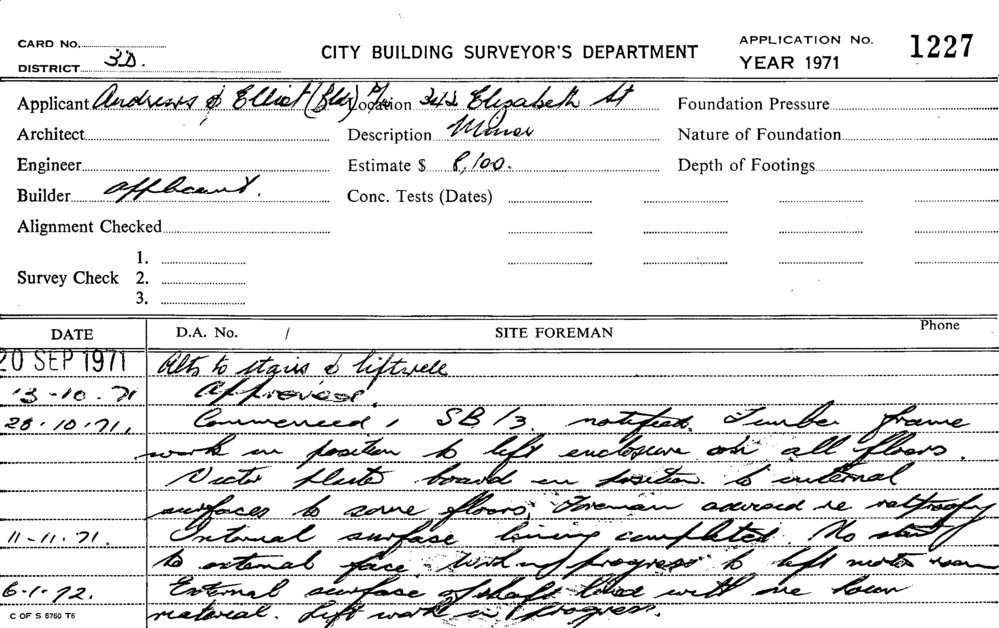 CARD No.
DISTRICT 3D.
CITY BUILDING SURVEYOR'S DEPARTMENT
APPLICATION No. 1227
YEAR 1971
Applicant Andrews & Elliot (Bldg) P/L Location 342 Elizabeth St Foundation Pressure
Architect Description Minor Nature of Foundation
Engineer Estimate $ 8,100. Depth of Footings
Builder applicant. Conc. Tests (Dates)
Alignment Checked
1.
Survey Check 2.
3.
DATE D.A. No. / SITE FOREMAN Phone
20 SEP 1971 Alts to stairs & liftwell
13-10.71 Approved.
28.10.71. Commenced, SB/3. notified. Timber frame
work in position to lift enclosure on all floors.
Victor plaster board in position to internal
surfaces to some floors, Foreman advised re ratproofing
11-11.71. Internal surface lining completed. No start
to external face. Work in progress to lift motor room
6-1-72. External surface of shaft lined with one hour
material. Lift work in progress.
C OF S 6760 T6